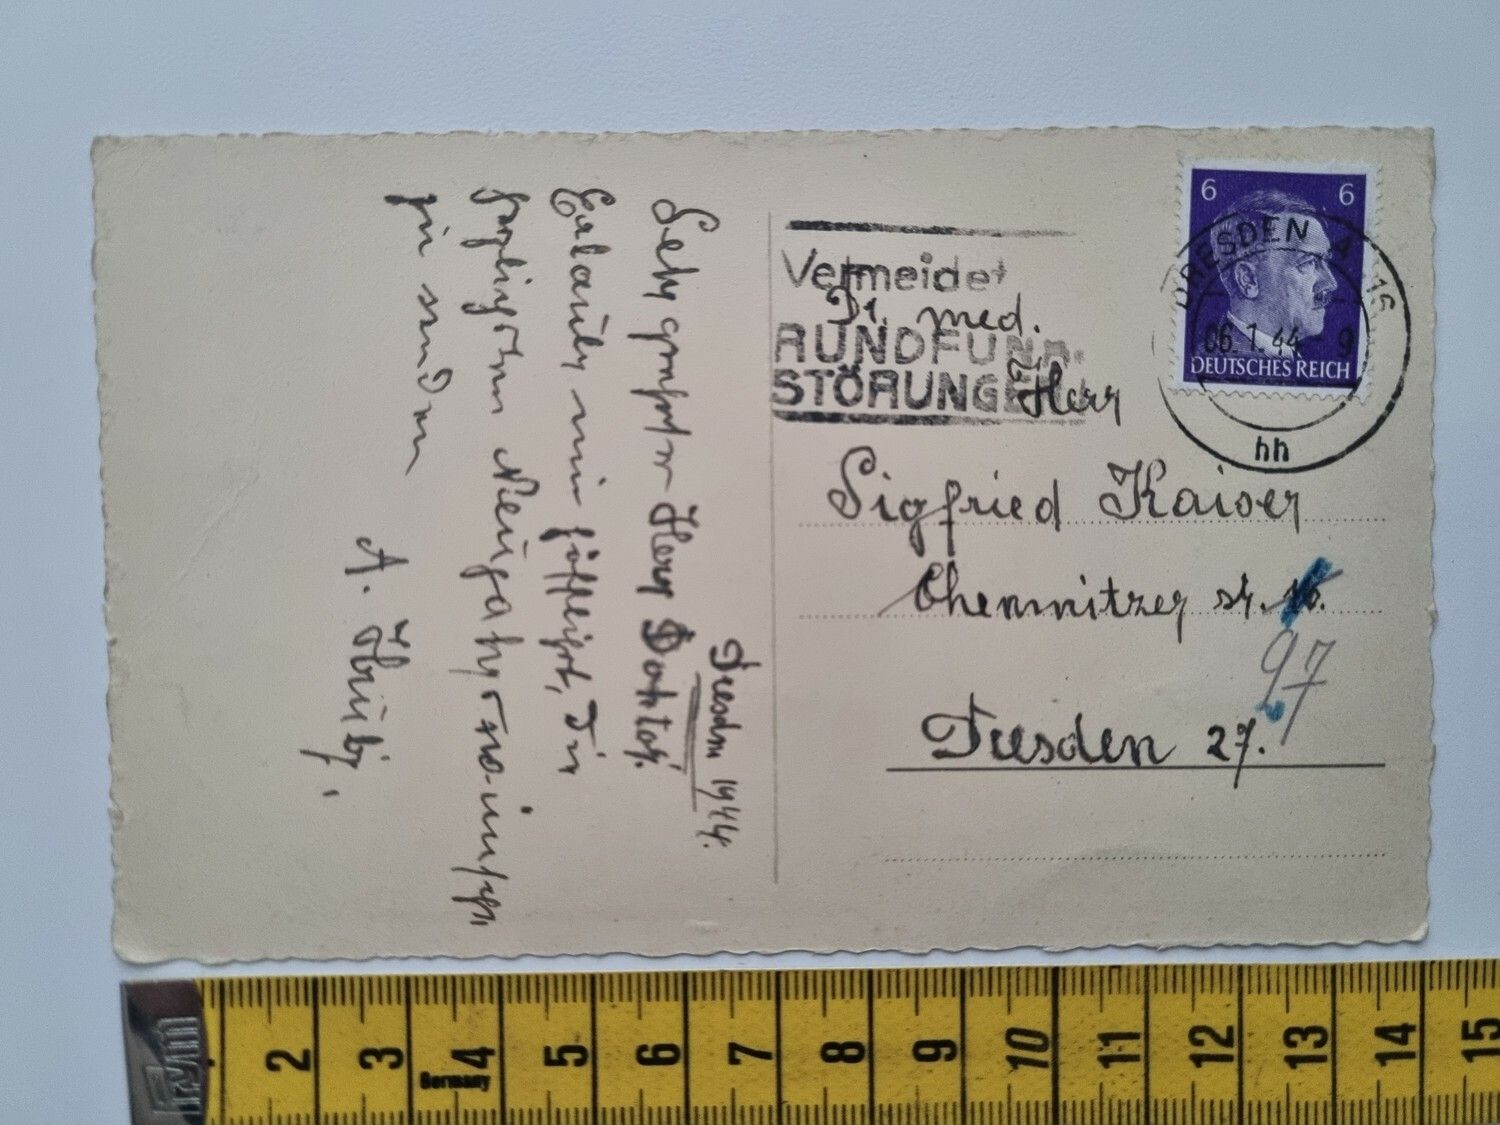 Dresden 1944.
Sehr geehrter Herr Doktor.
Erlaube mir höflichst, die
herzlichsten Neujahrswünsche
zu senden
A.
Vermeidet
RUNDFUNK-
STÖRUNGEN
6 6
DEUTSCHES REICH
DRESDEN A 16
06.1.44 - 9
hh
Dr. med.
Herr
Sigfried Kaiser
Chemnitzer str.
97
Dresden 27.
Prym
2 3 4 5 6 7 8 9 10 11 12 13 14 15
Germany